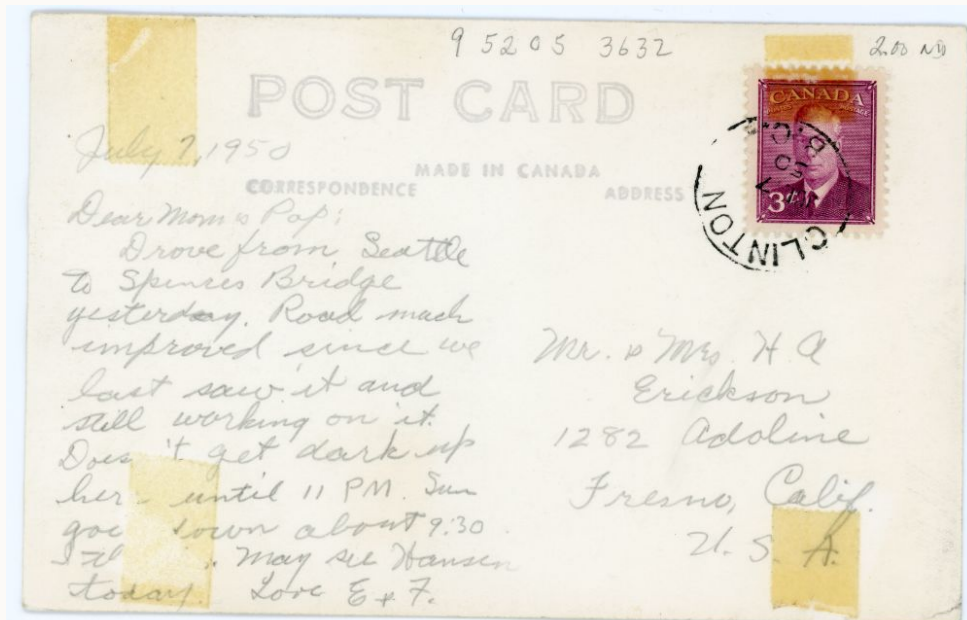 9 5205 3632
2.00 ND
POST CARD
CANADA
3
CLINTON
B.C.
July 7, 1950
MADE IN CANADA
CORRESPONDENCE
ADDRESS
Dear Mom & Pap:
Drove from Seattle
to Spences Bridge
yesterday. Road much
improved since we
last saw it and
still working on it.
Does 't get dark up
her until 11 PM. Sun
goe down about 9:30
. May see Hansen
today. Love E + F.
Mr. & Mrs. H A
Erickson
1282 Adoline
Fresno, Calif.
U. S. A.